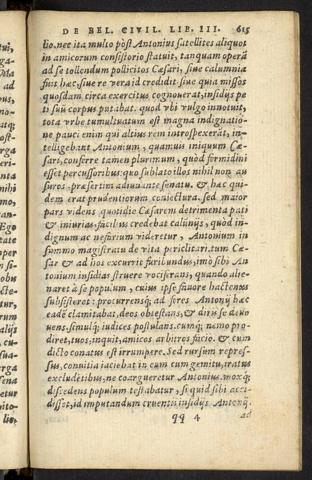 DE BEL. CIVIL. LIB. III. 615
lio. nec ita multo pòst Antonius satellites aliquot
in amicorum consistorio statuit, tanquam operā
ad se tollendum pollicitos Cæsari, siue calumnia
fuit hæc, siue re vera id credidit, siue quia missos
quosdam circa exercitus cognouerat, insidijs pe
ti suū corpus putabat. quod vbi vulgo innotuit,
tota vrbe tumultuatum est magna indignatio-
ne. pauci enim qui altius rem introspexerāt, in-
telligebant Antonium, quamuis iniquum Cæ-
sari, conferre tamen plurimum, quòd formidini
esset percussoribus: quo sublato illos nihil non au
suros, præsertim adiuuante senatu. & hæc qui-
dem erat prudentiorum coniectura. sed maior
pars videns quotidie Cæsarem detrimenta pati
& iniurias, facilius credebat calunijs, quòd in-
dignum ac nefarium videretur, Antonium in
summo magistratu de vita periclitari. tum Cæ-
sar & ad hos excurrit furibundus, imò sibi An-
tonium insidias struere vociferans, quando alie-
naret à se populum, cuius ipse fauore hactenus
subsisteret: procurrensq; ad fores Antonij hæc
eadē clamitabat, deos obtestans, & diris se deuo
uens, simulq; iudices postulans. cumq; nemo pro-
diret, tuos, inquit, amicos arbitros facio. & cum
dicto conatus est irrumpere. Sed rursum repres-
sus, conuitia iaciebat in eum cum gemitu, iratus
excludētibus, ne coargueretur Antonius. moxq;
discedens populum testabatur, si quid sibi acci-
disset, id imputandum cruentis insidijs Antonij.
qq 4 ad